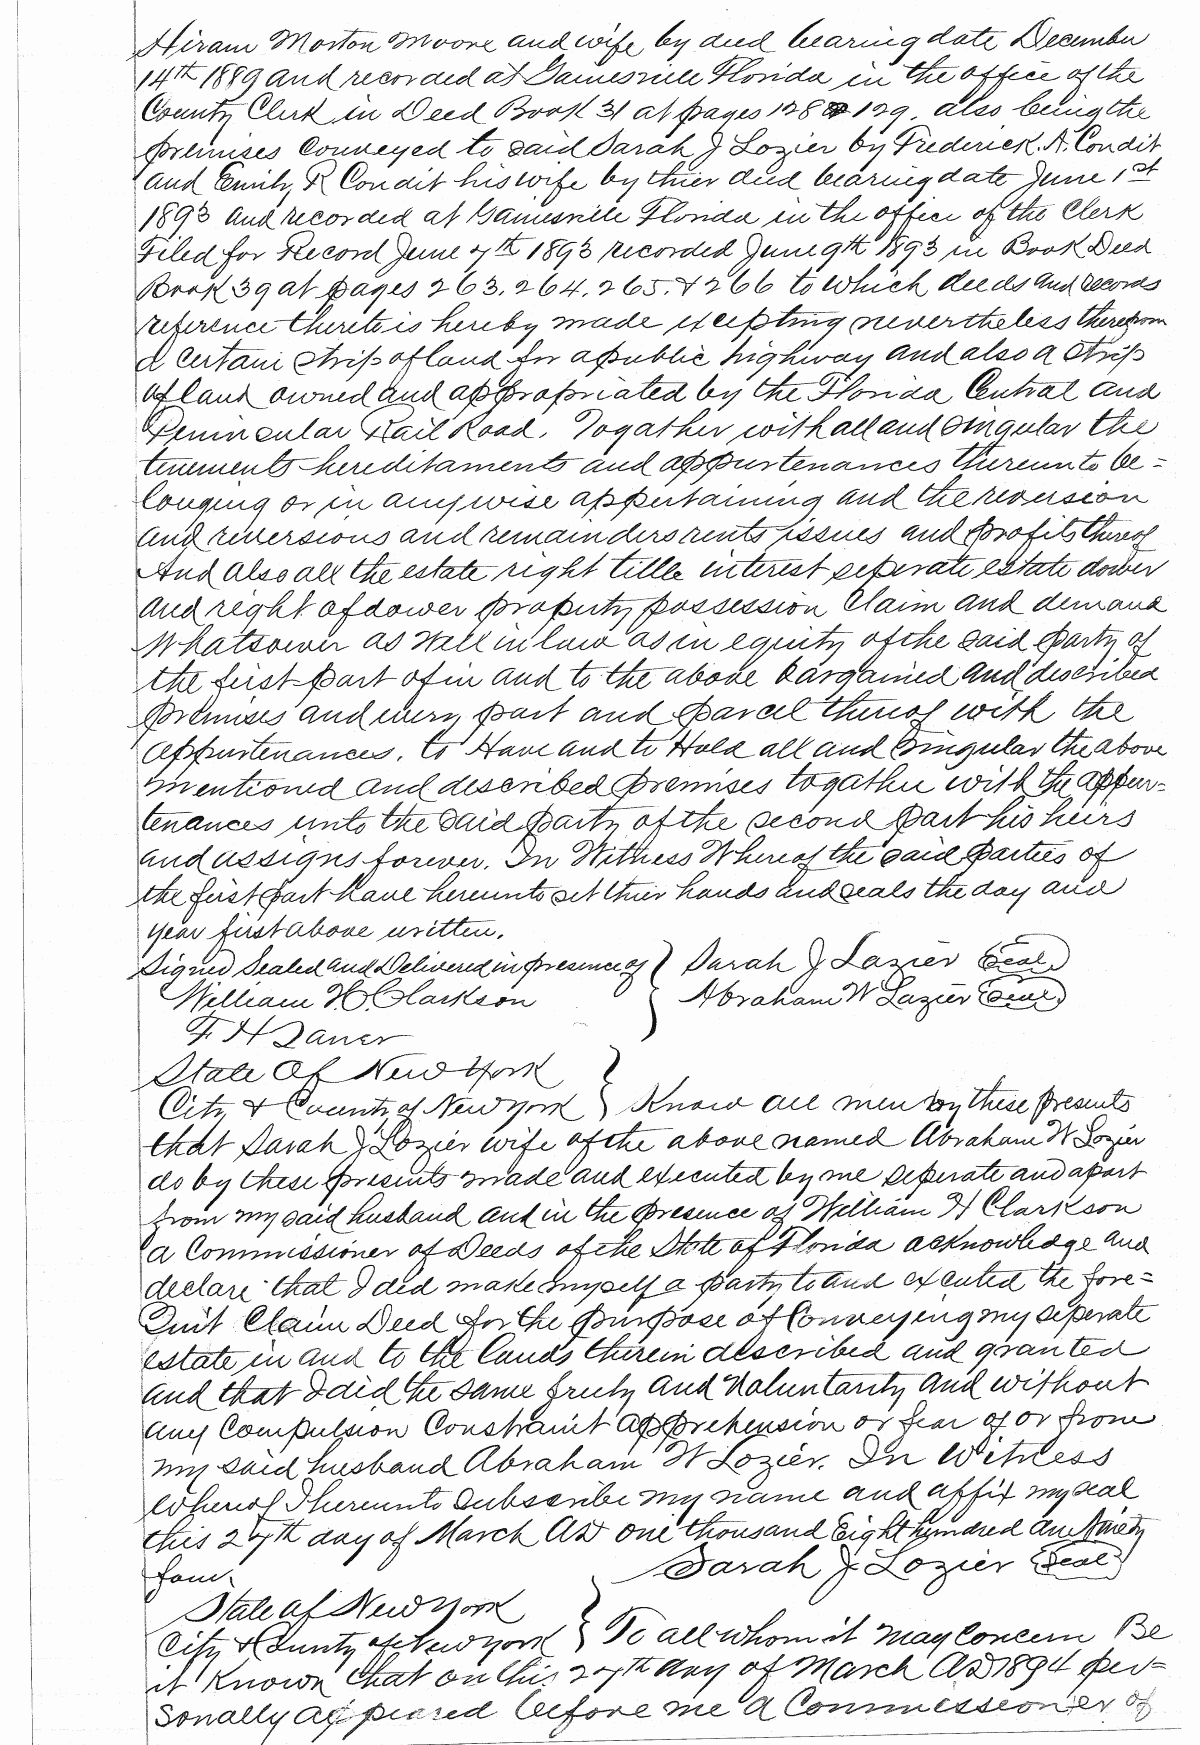 Hiram Morton Moore and wife by deed bearing date December
14th 1889 and recorded at Gainesville Florida in the office of the
County Clerk in Deed Book 31 at pages 128 & 129. also being the
premises conveyed to said Sarah J Lozier by Frederick. A. Condit
and Emily R Condit his wife by thier deed bearing date June 1st
1893 and recorded at Gainesville Florida in the office of the Clerk
Filed for Record June 7th 1893 recorded June 9th 1893 in Book Deed
Book 39 at pages 263. 264. 265. & 266 to which deeds and records
reference thereto is hereby made excepting nevertheless therefrom
a certain strip of land for a public highway and also a strip
of land owned and appropriated by the Florida Central and
Peninsular Rail Road. Togather with all and singular the
tenements hereditaments and appurtenances thereunto be=
longing or in any wise appertaining and the reversion
and reversions and remainders rents issues and profits thereof
And also all the estate right title interest seperate estate dower
and right of dower property possession Claim and demand
Whatsoever as well in law as in equity of the said party of
the first part of in and to the above bargained and described
premises and every part and parcel thereof with the
appurtenances. to Have and to Hold all and Singular the above
mentioned and described premises togather with the appur=
tenances unto the said party of the second part his heirs
and assigns forever. In Witness Whereof the said parties of
the first part have hereunto set thier hands and seals the day and
year first above written.
Signed Sealed and Delivered in presence of } Sarah J Lazier Seal
William H. Clarkson Abraham W Lazier Seal
F. H
State Of New York
City & County of New York } Know all men by these presents
that Sarah J Lozier wife of the above named Abraham W Lozier
do by these presents made and executed by me seperate and apart
from my said husband and in the presence of William H Clarkson
a Commissioner of Deeds of the State of Florida acknowledge and
declare that I did make myself a party to and executed the fore=
Quit Claim Deed for the purpose of Conveying my seperate
estate in and to the lands therein described and granted
and that I did the same freely and Voluntarily and without
any Compulsion Constraint apprehension or fear of or from
my said husband Abraham W Lozier. In Witness
Whereof I hereunto Subscribe my name and affix my seal
this 27th day of March AD one thousand Eight hundred and Ninety
four. Sarah J. Lozier Seal
State of New York
City & County of New York } To all whom it may Concern Be
it Known that on this 27th day of March AD 1894 per=
sonally appeared before me a Commissioner of